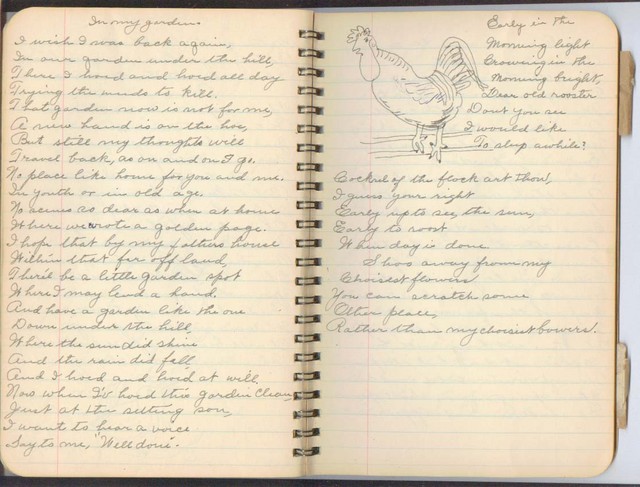 In my garden
I wish I was back again,
In our garden under the hill,
There I hoed and hoed all day
Trying the weeds to kill.
That garden now is not for me,
A new hand is on the hoe,
But still my thoughts will
Travel back, as on and on I go.
No place like home for you and me.
In youth or in old age.
No scenes as dear as when at home
Where we wrote a golden page.
I hope that by my fathers house
Within that far off land,
There'd be a little garden spot
Where I may lend a hand.
And have a garden like the one
Down under the hill,
Where the sun did shine
And the rain did fall
And I hoed and hoed at will.
Now when I'v hoed this garden clean,
Just at the setting son,
I want to hear a voice
Say to me, "Well done".
Early in the
Morning light
Crowing in the
Morning bright,
Dear old rooster
Dont you see
I would like
To sleep awhile?
Cockrel of the flock art thou,
I guess your right
Early up to see, the sun,
Early to roost
When day is done
Shoo away from my
Choisest flowers
You can scratch some
Other place,
Rather than my choisist bowers.